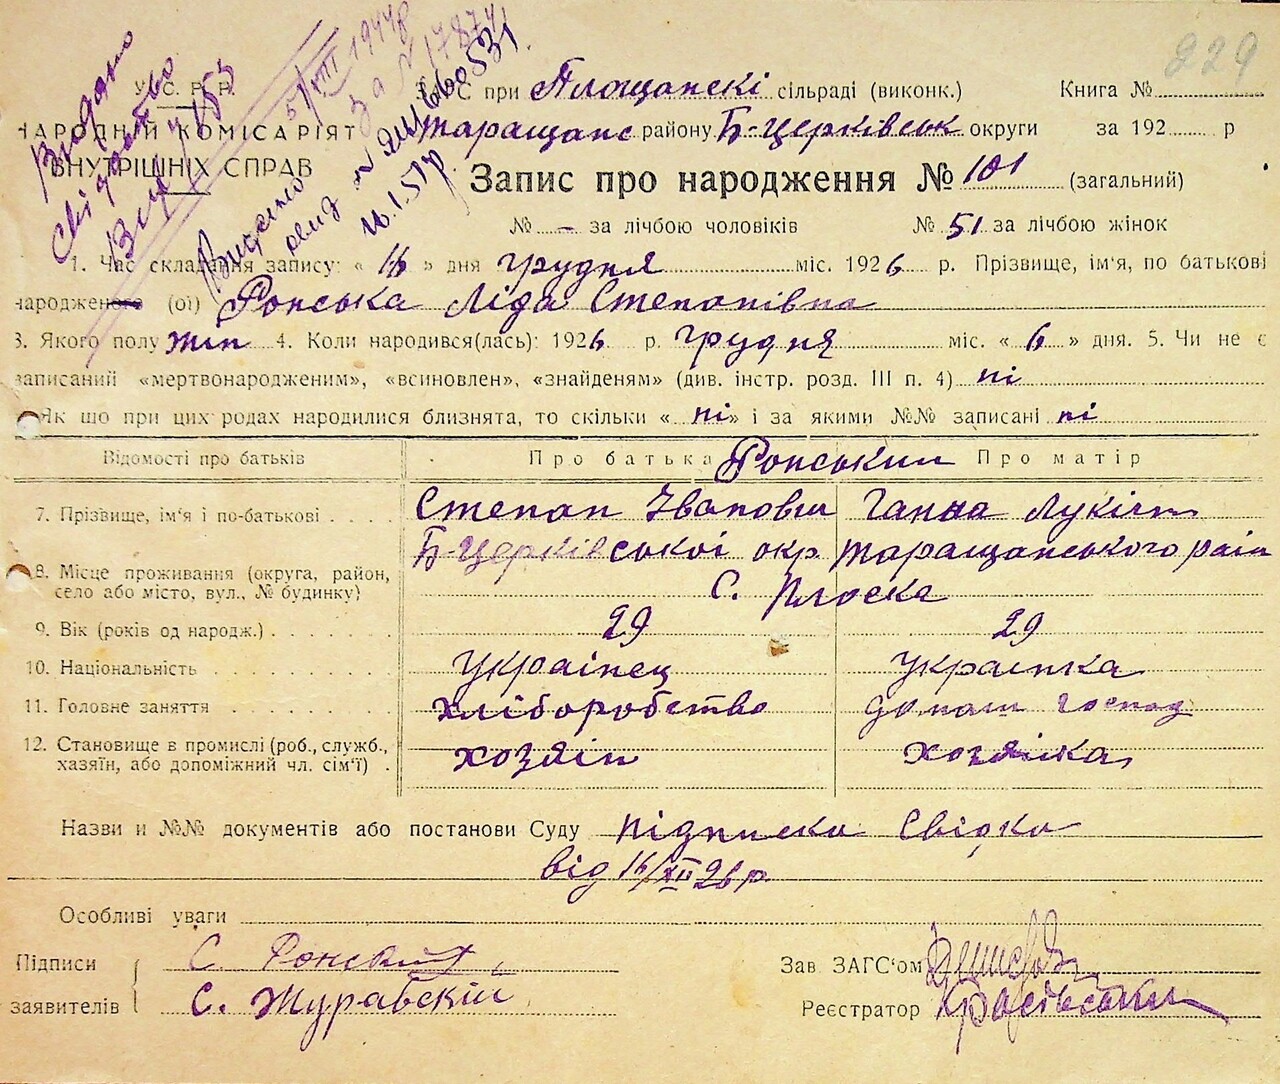 229
Видано
свідоцтво
5/VIII 1944 р
за № 17874
16.1.51 р.
У.С.Р.Р.
НАРОДНІЙ КОМІСАРІЯТ
ВНУТРІШНІХ СПРАВ
ЗАГС при Площанскі сільраді (виконк.) Книга №
Таращанс району Б-Церківськ округи за 192 р
Запис про народження № 101 (загальний)
№ - за лічбою чоловіків № 51 за лічбою жінок
1. Час складання запису: « 16 » дня грудня міс. 1926 р. Прізвище, ім'я, по батькові
народженого (ої) Ронська Ліда Степанівна
3. Якого полу жін 4. Коли народився(лась): 1926 р. грудня міс. « 6 » дня. 5. Чи не є
записаний «мертвонародженим», «всиновлен», «знайденям» (див. інстр. розд. III п. 4) ні
Як що при цих родах народилися близнята, то скільки « ні » і за якими №№ записані ні
Відомості про батьків Про батька Ронський Про матір
7. Прізвище, ім'я і по-батькові Степан Іванович Ганна Лукічн
Б-Церківської окр Таращанського раін
8. Місце проживання (округа, район,
село або місто, вул., № будинку) С. Плоска
9. Вік (років од народж.) 29 29
10. Національність Українец Українка
11. Головне заняття хліборобство домаш господ
12. Становище в промислі (роб., служб.,
хазяїн, або допоміжний чл. сім'ї) хозяін хозяйка
Назви и №№ документів або постанови Суду підписка свідка
від 16/XII 26 р.
Особливі уваги
Підписи С. Ронский Зав. ЗАГС'ом
заявителів С. Журавскій Реєстратор